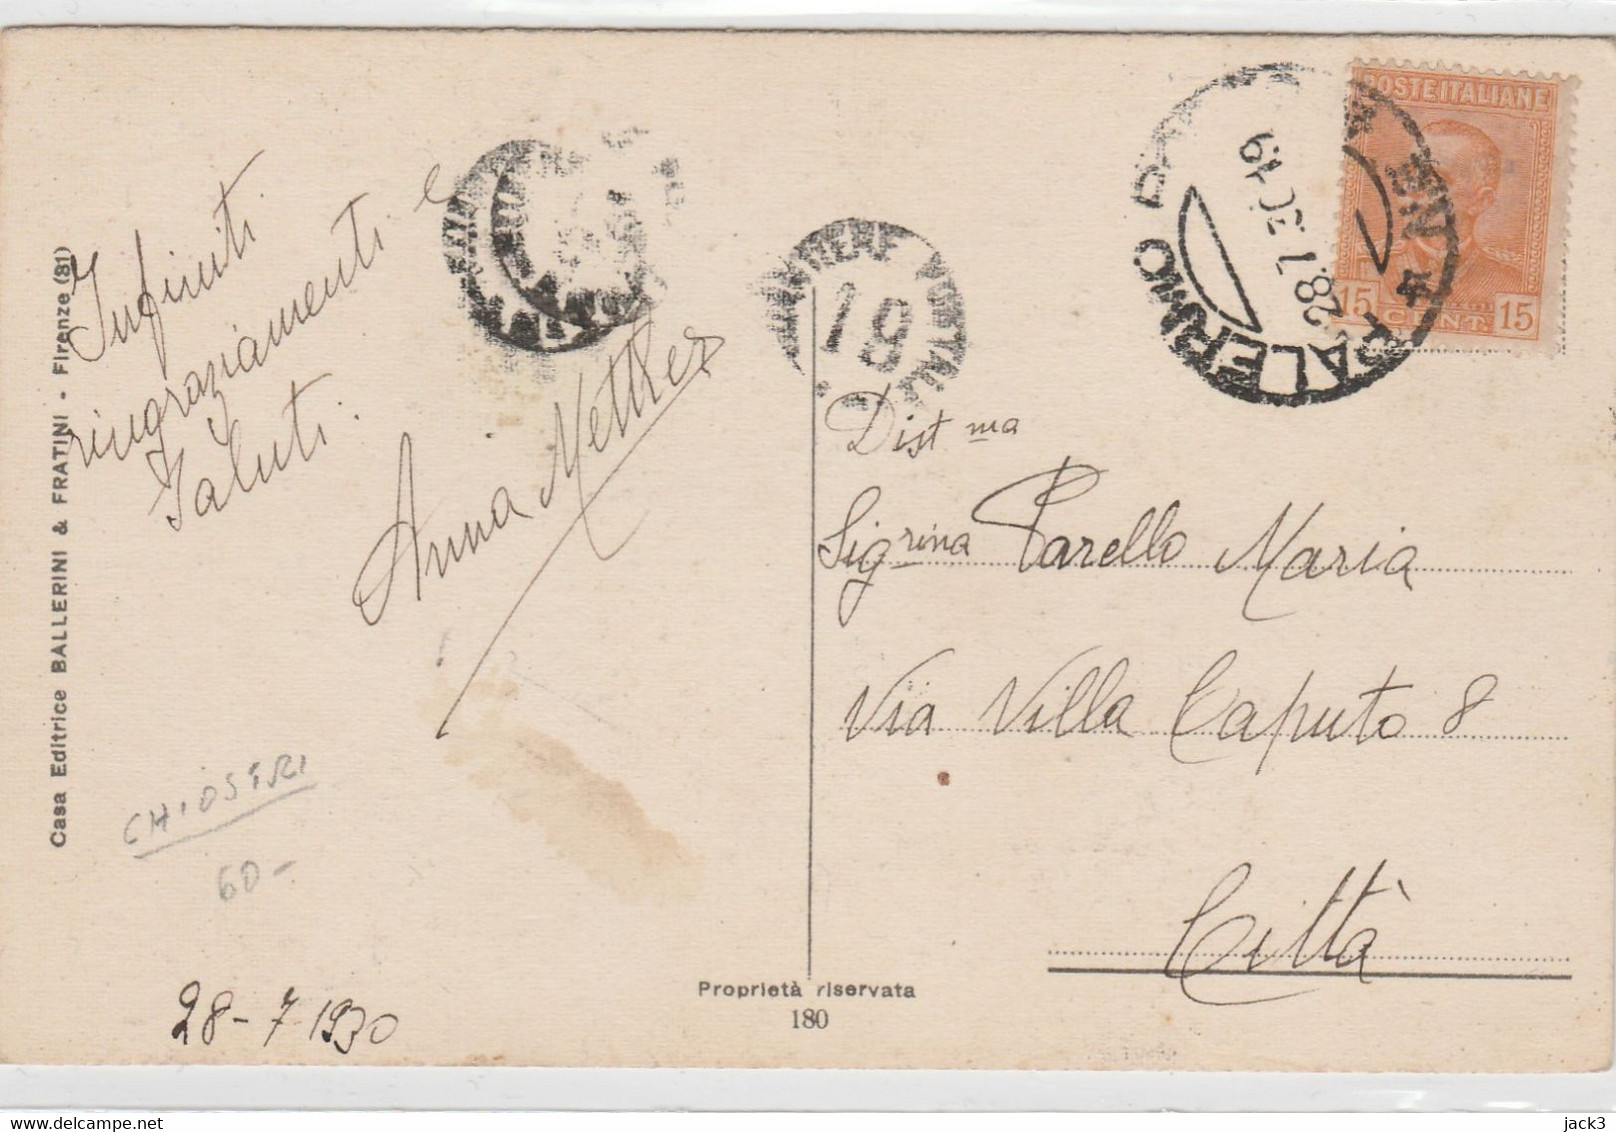 Infiniti
ringraziamenti e
Saluti.
Anna
Casa Editrice BALLERINI & FRATINI - Firenze (81)
CHIOSTRI
60-
28-7 1930
PORTALETTERE
19
PALERMO
28.7.30.19
POSTE ITALIANE
15 CENT. 15
Dist ma
Sig rina Parello Maria
Via Villa Caputo 8
Città
Proprietà riservata
180
delcampe.net
jack3